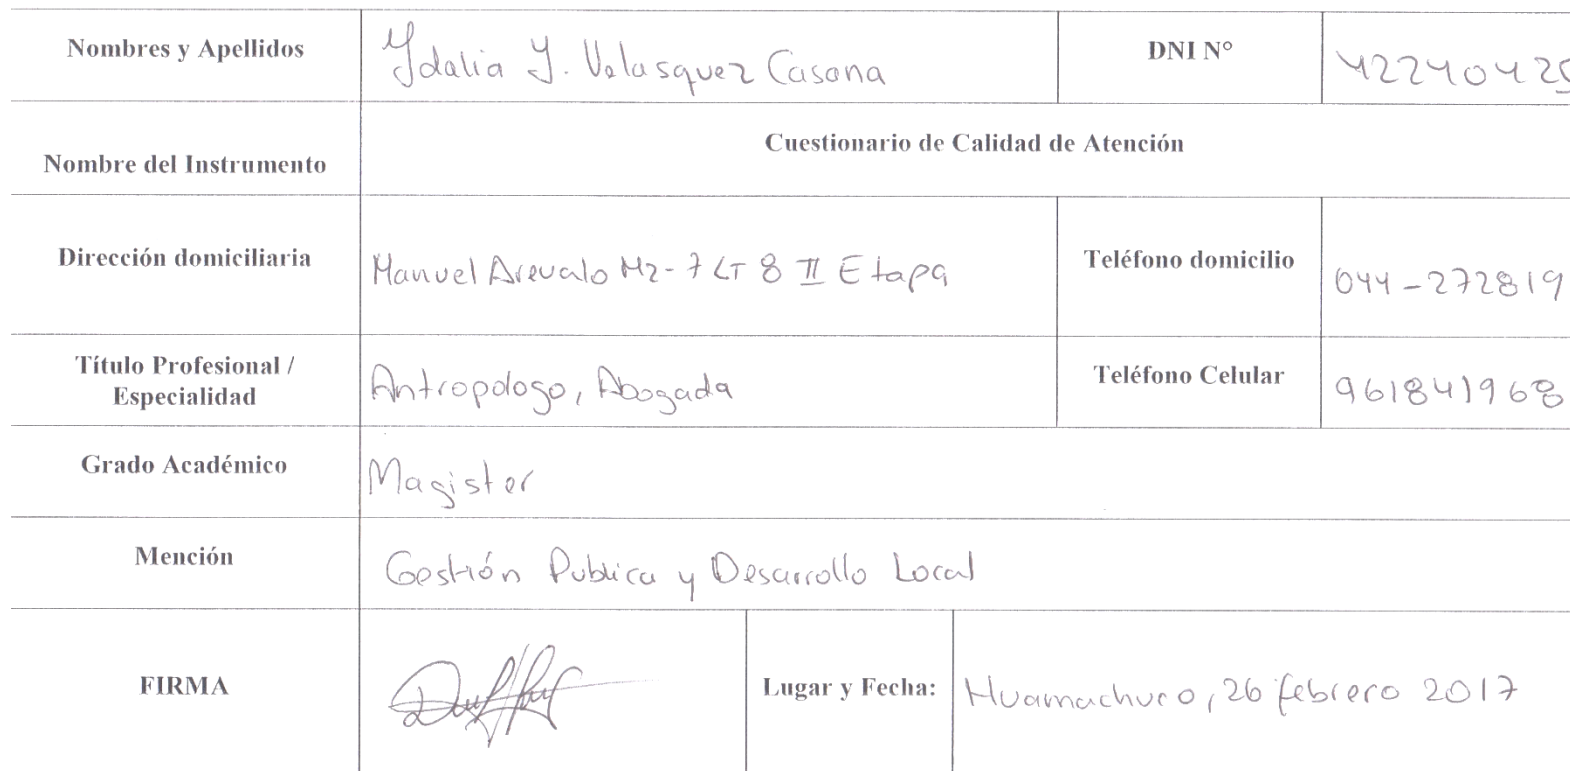 Nombres y Apellidos Ydalia Y. Velasquez Casana DNI N°
Cuestionario de Calidad de Atención
Nombre del Instrumento
Dirección domiciliaria Manuel Arevalo Mz-7 LT 8 II Etapa Teléfono domicilio 044-272819
Título Profesional /
Especialidad Antropologo, Abogada Teléfono Celular 961841968
Grado Académico Magister
Mención Gestión Publica y Desarrollo Local
FIRMA Lugar y Fecha: Huamachuco, 26 febrero 2017